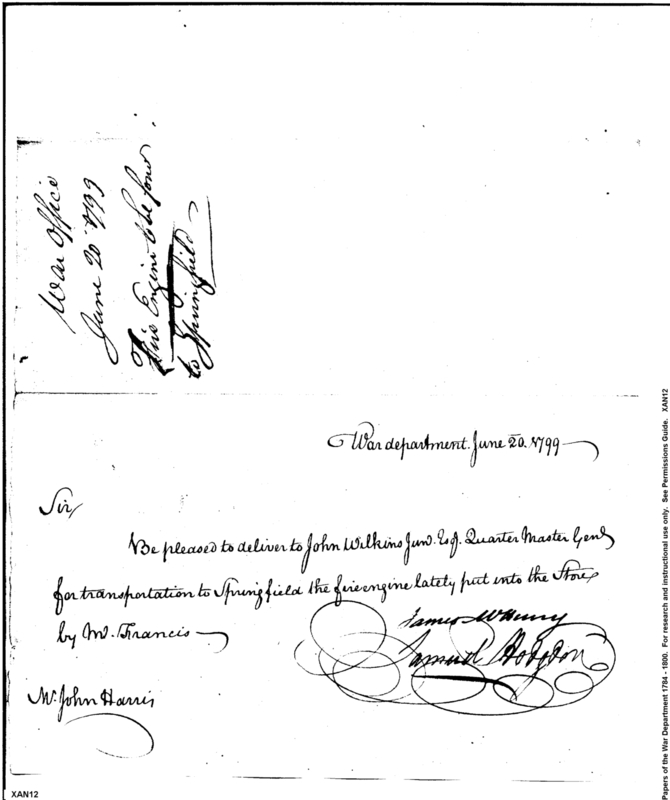 War Office
June 20 1799
Fire Engine to be forwd
to Springfield
War department. June 20. 1799
Sir,
Be pleased to deliver to John Wilkins Junr. Esqr. Quarter Master Genl
for transportation to Springfield the fire engine lately put into the Store
by Mr. Francis
James McHenry
Samuel Hodgdon
Mr. John Harris
XAN12
Papers of the War Department 1784 - 1800. For research and instructional use only. See Permissions Guide. XAN12